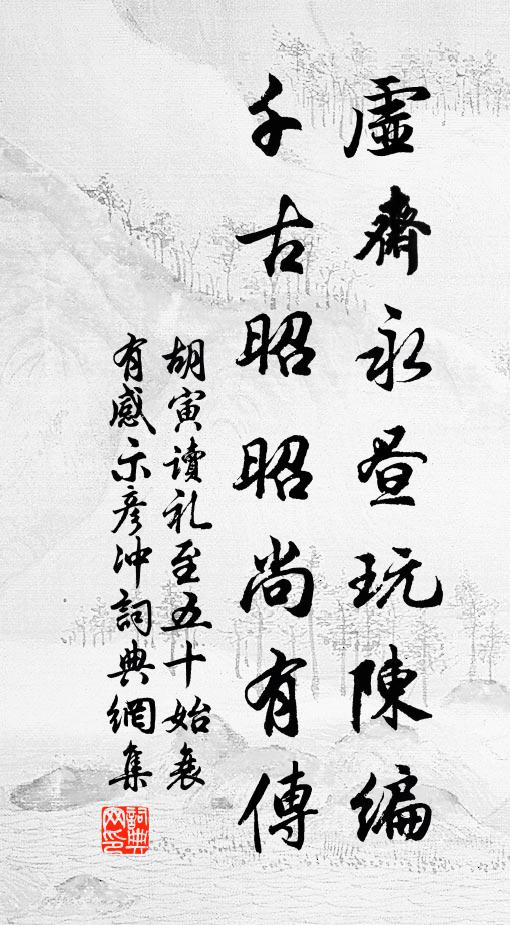 虛齋永昼玩陳編
千古昭昭尚有傳
胡寅讀礼至五十始衰
有感示彥冲詞典網集
詞典网印